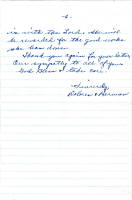 -2-
is with the Lord. She will
be rewarded for the good works
she has done.
Thank you again for your letter.
Our sympathy to all of you.
God Bless & take care.
Sincerely,
Dolores & Herman